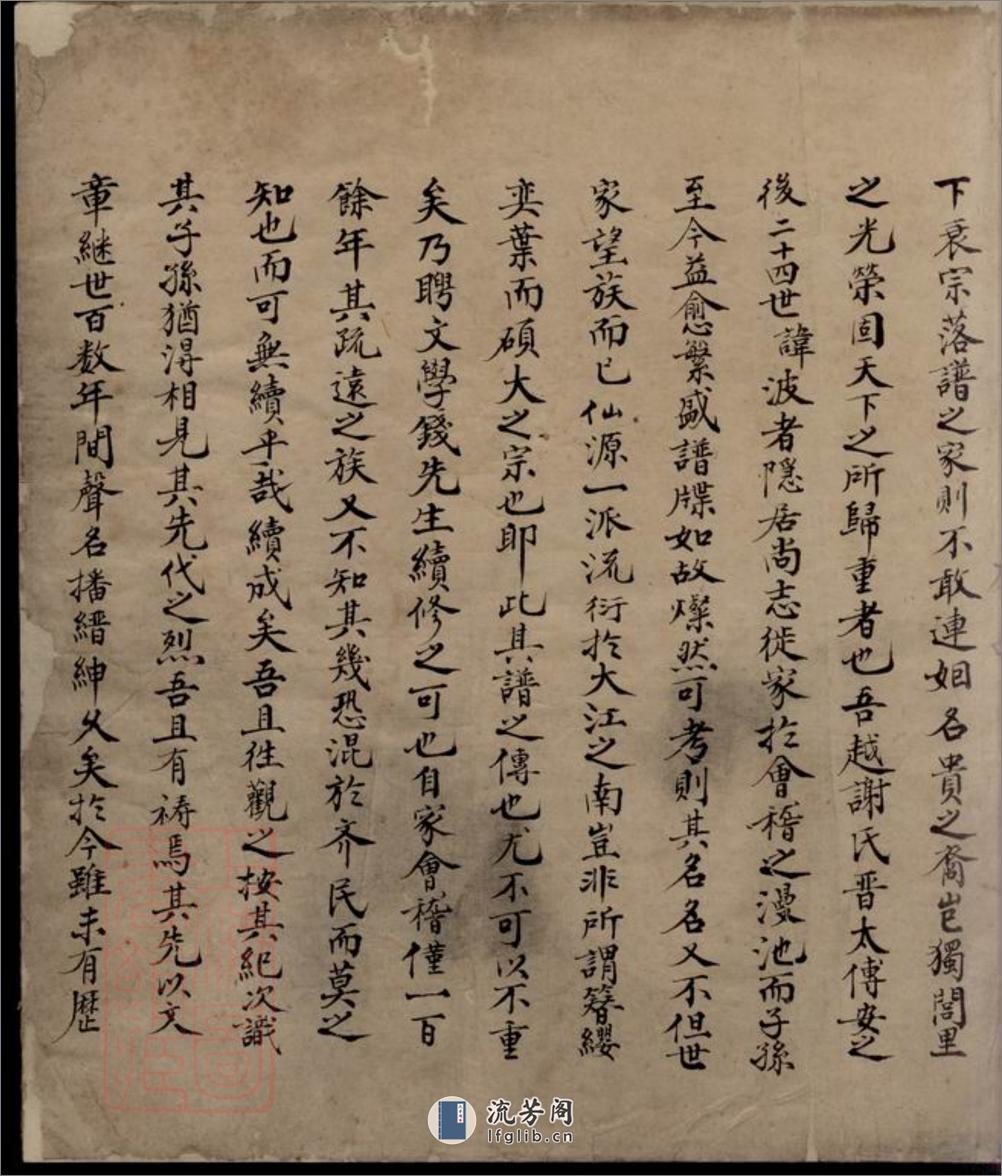 下衰宗落譜之家則不敢連姻名貴之裔豈獨閭里
之光榮固天下之所歸重者也吾越謝氏晋太傅安之
後二十四世諱波者隱居尚志徙家於會稽之漫池而子孫
至今益愈繁盛譜牒如故燦然可考則其名名又不但世
家望族而已仙源一派流衍於大江之南豈非所謂簪纓
奕葉而碩大之宗也耶此其譜之傳也尤不可以不重
矣乃聘文學錢先生續修之可也自家會稽僅一百
餘年其疏遠之族又不知其幾恐混於齐民而莫之
知也而可無續乎哉續成矣吾且徃觀之按其紀次識
其子孫猶淂相見其先代之烈吾且有祷焉其先以文
章継世百数年間聲名播縉紳久矣於今雖未有歴
流芳阁
lfglib.cn